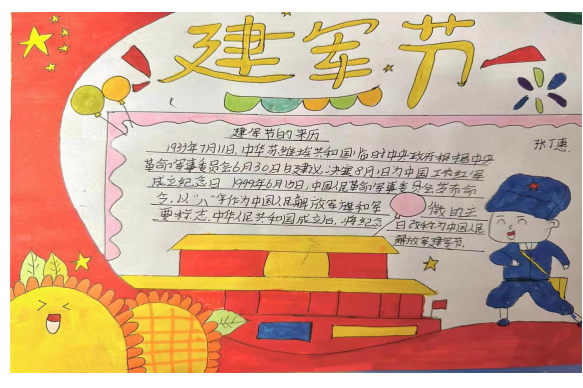 建军节
建军节的来历
张丁惠
1933年7月11日,中华苏维埃共和国临时中央政府根据中央
革命军事委员会6月30日的建议,决定8月1日为中国工农红军
成立纪念日 1949年6月15日,中国人民革命军事委员会发布命
令,以"八一"字作为中国人民解放军旗和军
要标志,中华人民共和国成立后,将纪念
日改称为中国人民
解放军建军节.